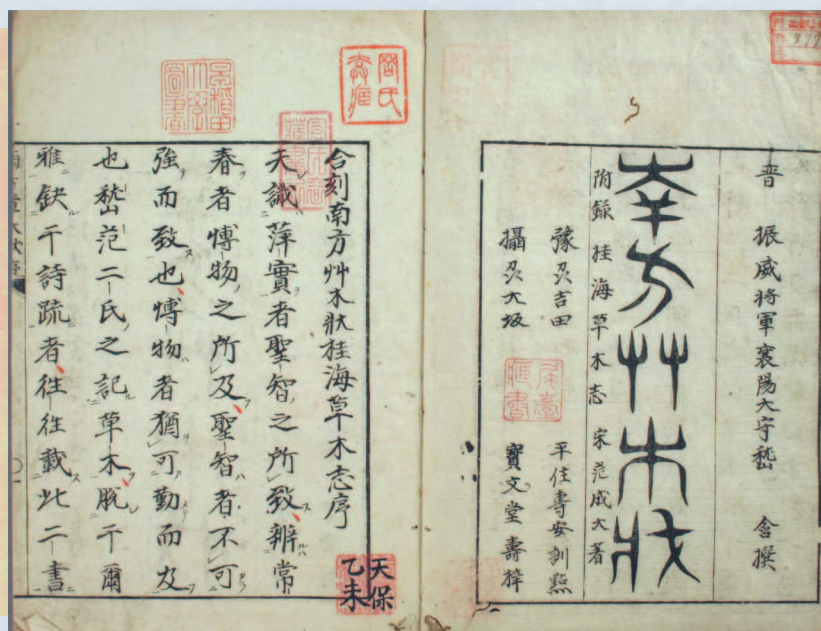 晋 振威将軍襄陽大守嵆 含撰
南方艸木狀
附録 桂海草木志 宋范成大著
豫刕吉田 平住壽安訓點
攝刕大坂 寳文堂壽梓
合刻南方艸木狀桂海草木志序
夫識萍實者聖智之所致辨常
春者愽物之所及聖智者不可
強而致也愽物者猶可勤而及
也嵆范二氏之記草木脫于爾
雅缺于詩疏者往往載此二書
早稲田大學圖書
天保
乙未